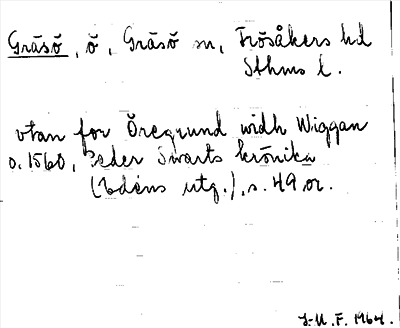 Gräsö, ö, Gräsö sn, Frösåkers hd
Sthms l.
vtan for Öregrund widh Wiggan
o. 1560, Peder Swarts krönika
(Edéns utg.), s. 49 or.
J-U. F. 1964.